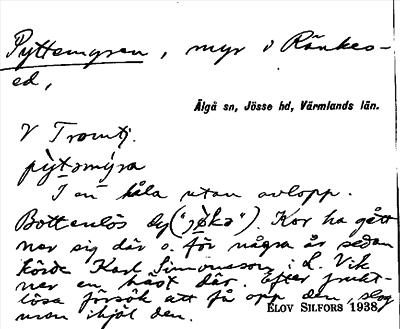 Pyttemyren, myr i Ränkes-
ed,
Älgå sn, Jösse hd, Värmlands län.
V Tromtj.
pỳtəmýra
I en håla utan avlopp.
Bottenlös dy ("jøkə"). Kor ha gått
ner sig där o. för några år sedan
körde Karl Simonsson i L. Vik
ner en häst där. Efter frukt-
lösa försök att få opp den, slog
man ihjäl den.
ELOV SILFORS 1938